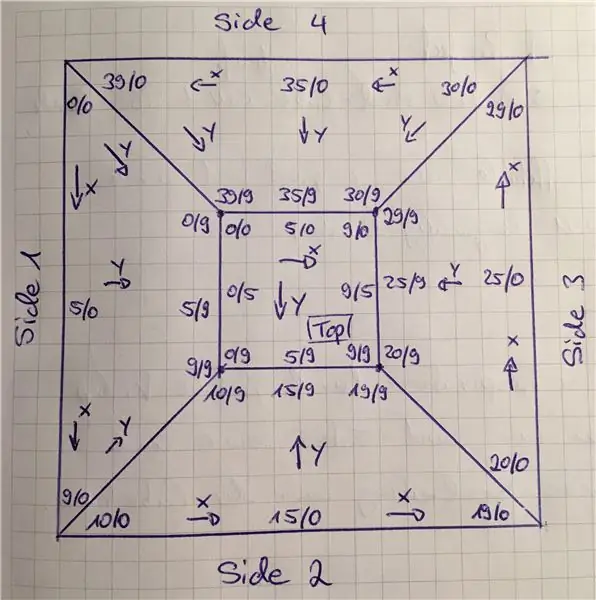 Side 4
39/0 ← X 35/0 ← X 30/0
0/0 29/0
Y Y Y
X X
39/9 35/9 30/9
0/9 0/0 5/0 9/0 29/9
X
Side 1 5/0 Y 5/9 0/5 Y 9/5 25/9 Y 25/0 Side 3
Top
0/9 5/9 9/9
9/9 20/9
10/9 15/9 19/9
X X
Y Y
20/0
9/0
10/0 X 15/0 X 19/0
Side 2